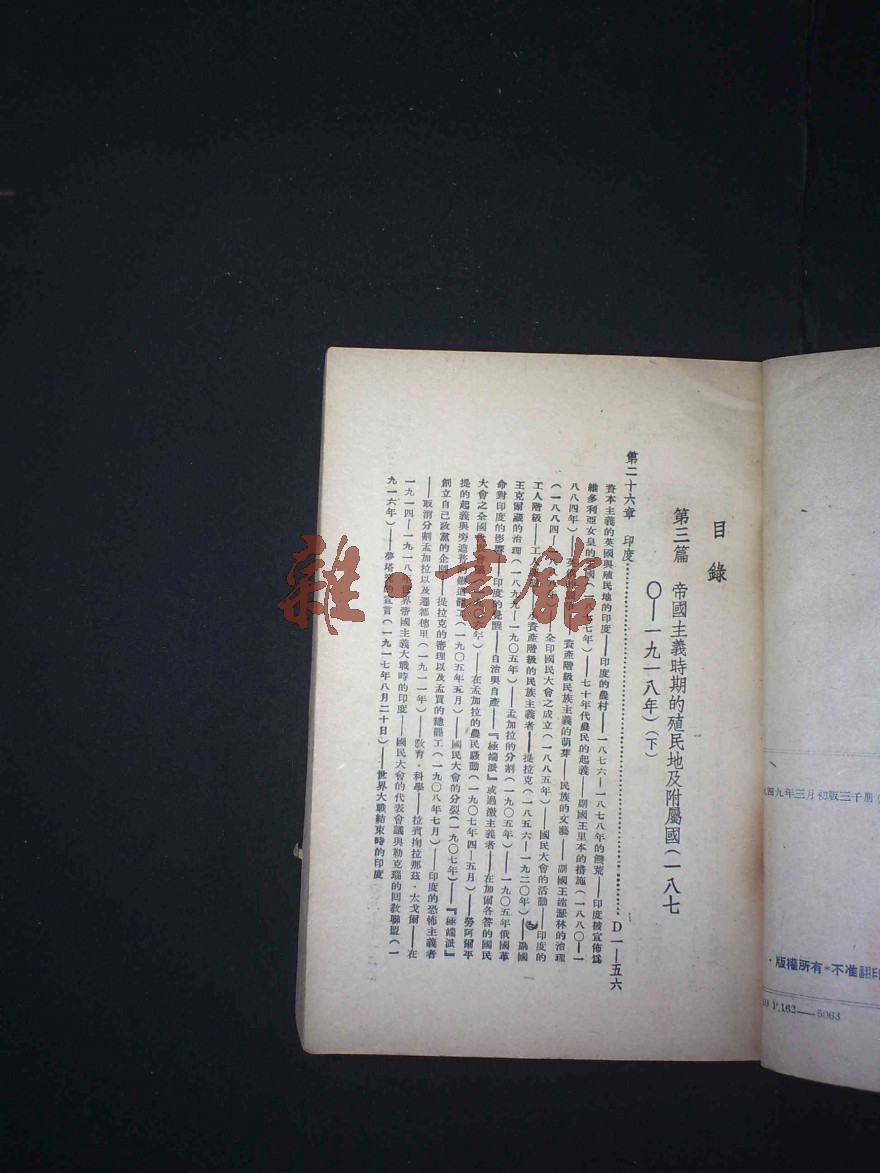 目錄
第三篇 帝國主義時期的殖民地及附屬國(一八七
〇—一九一八年)(下)
第二十六章 印度…………D 1—五六
資本主義的英國與殖民地的印度——印度的農村——一八七六—一八七八年的饑荒——印度被宣佈爲
維多利亞女皇的國(一八七七年)——七十年代農民的起義——副國王里本的措施(一八八〇—一
八八四年)——資產階級民族主義的萌芽——民族的文藝——副國王達瑟林的治理
(一八八四—一八年)——全印國民大會之成立(一八八五年)——國民大會的活動——印度的
工人階級——工人資產階級的民族主義者——提拉克(一八五六—一九二〇年)——副國
王克爾從的治理(一八九九—一九〇五年)——孟加拉的分割(一九〇五年)——一九〇五年俄國革
命對印度的影響——印度的覺醒——自治與自產——『極端派』或過激主義者——在加爾各答的國民
大會之全國年)——在孟加拉的農民騷動(一九〇七年四—五月)——勞阿爾平
提的起義與旁遮鐵道罷工(一九〇五年五月)——國民大會的分裂(一九〇七年)——『極端派』
創立自己政黨的企圖——提拉克的審理以及孟買的總罷工(一九〇八年七月)——印度的恐怖主義者
——取消分割孟加拉以及遷都德里(一九一一年)——敎育·科學——拉賓拉那茲·太戈爾——在
一九一四—一九一八世界帝國主義大戰時的印度——國民大會的代表會議與勒克瑙的回敎聯盟(一
九一六年)——夢塔的宣言(一九一七年八月二十日)——世界大戰結束時的印度
四九年三月初版三千册
·版權所有·不准翻印
P.162——5063
雜·書館